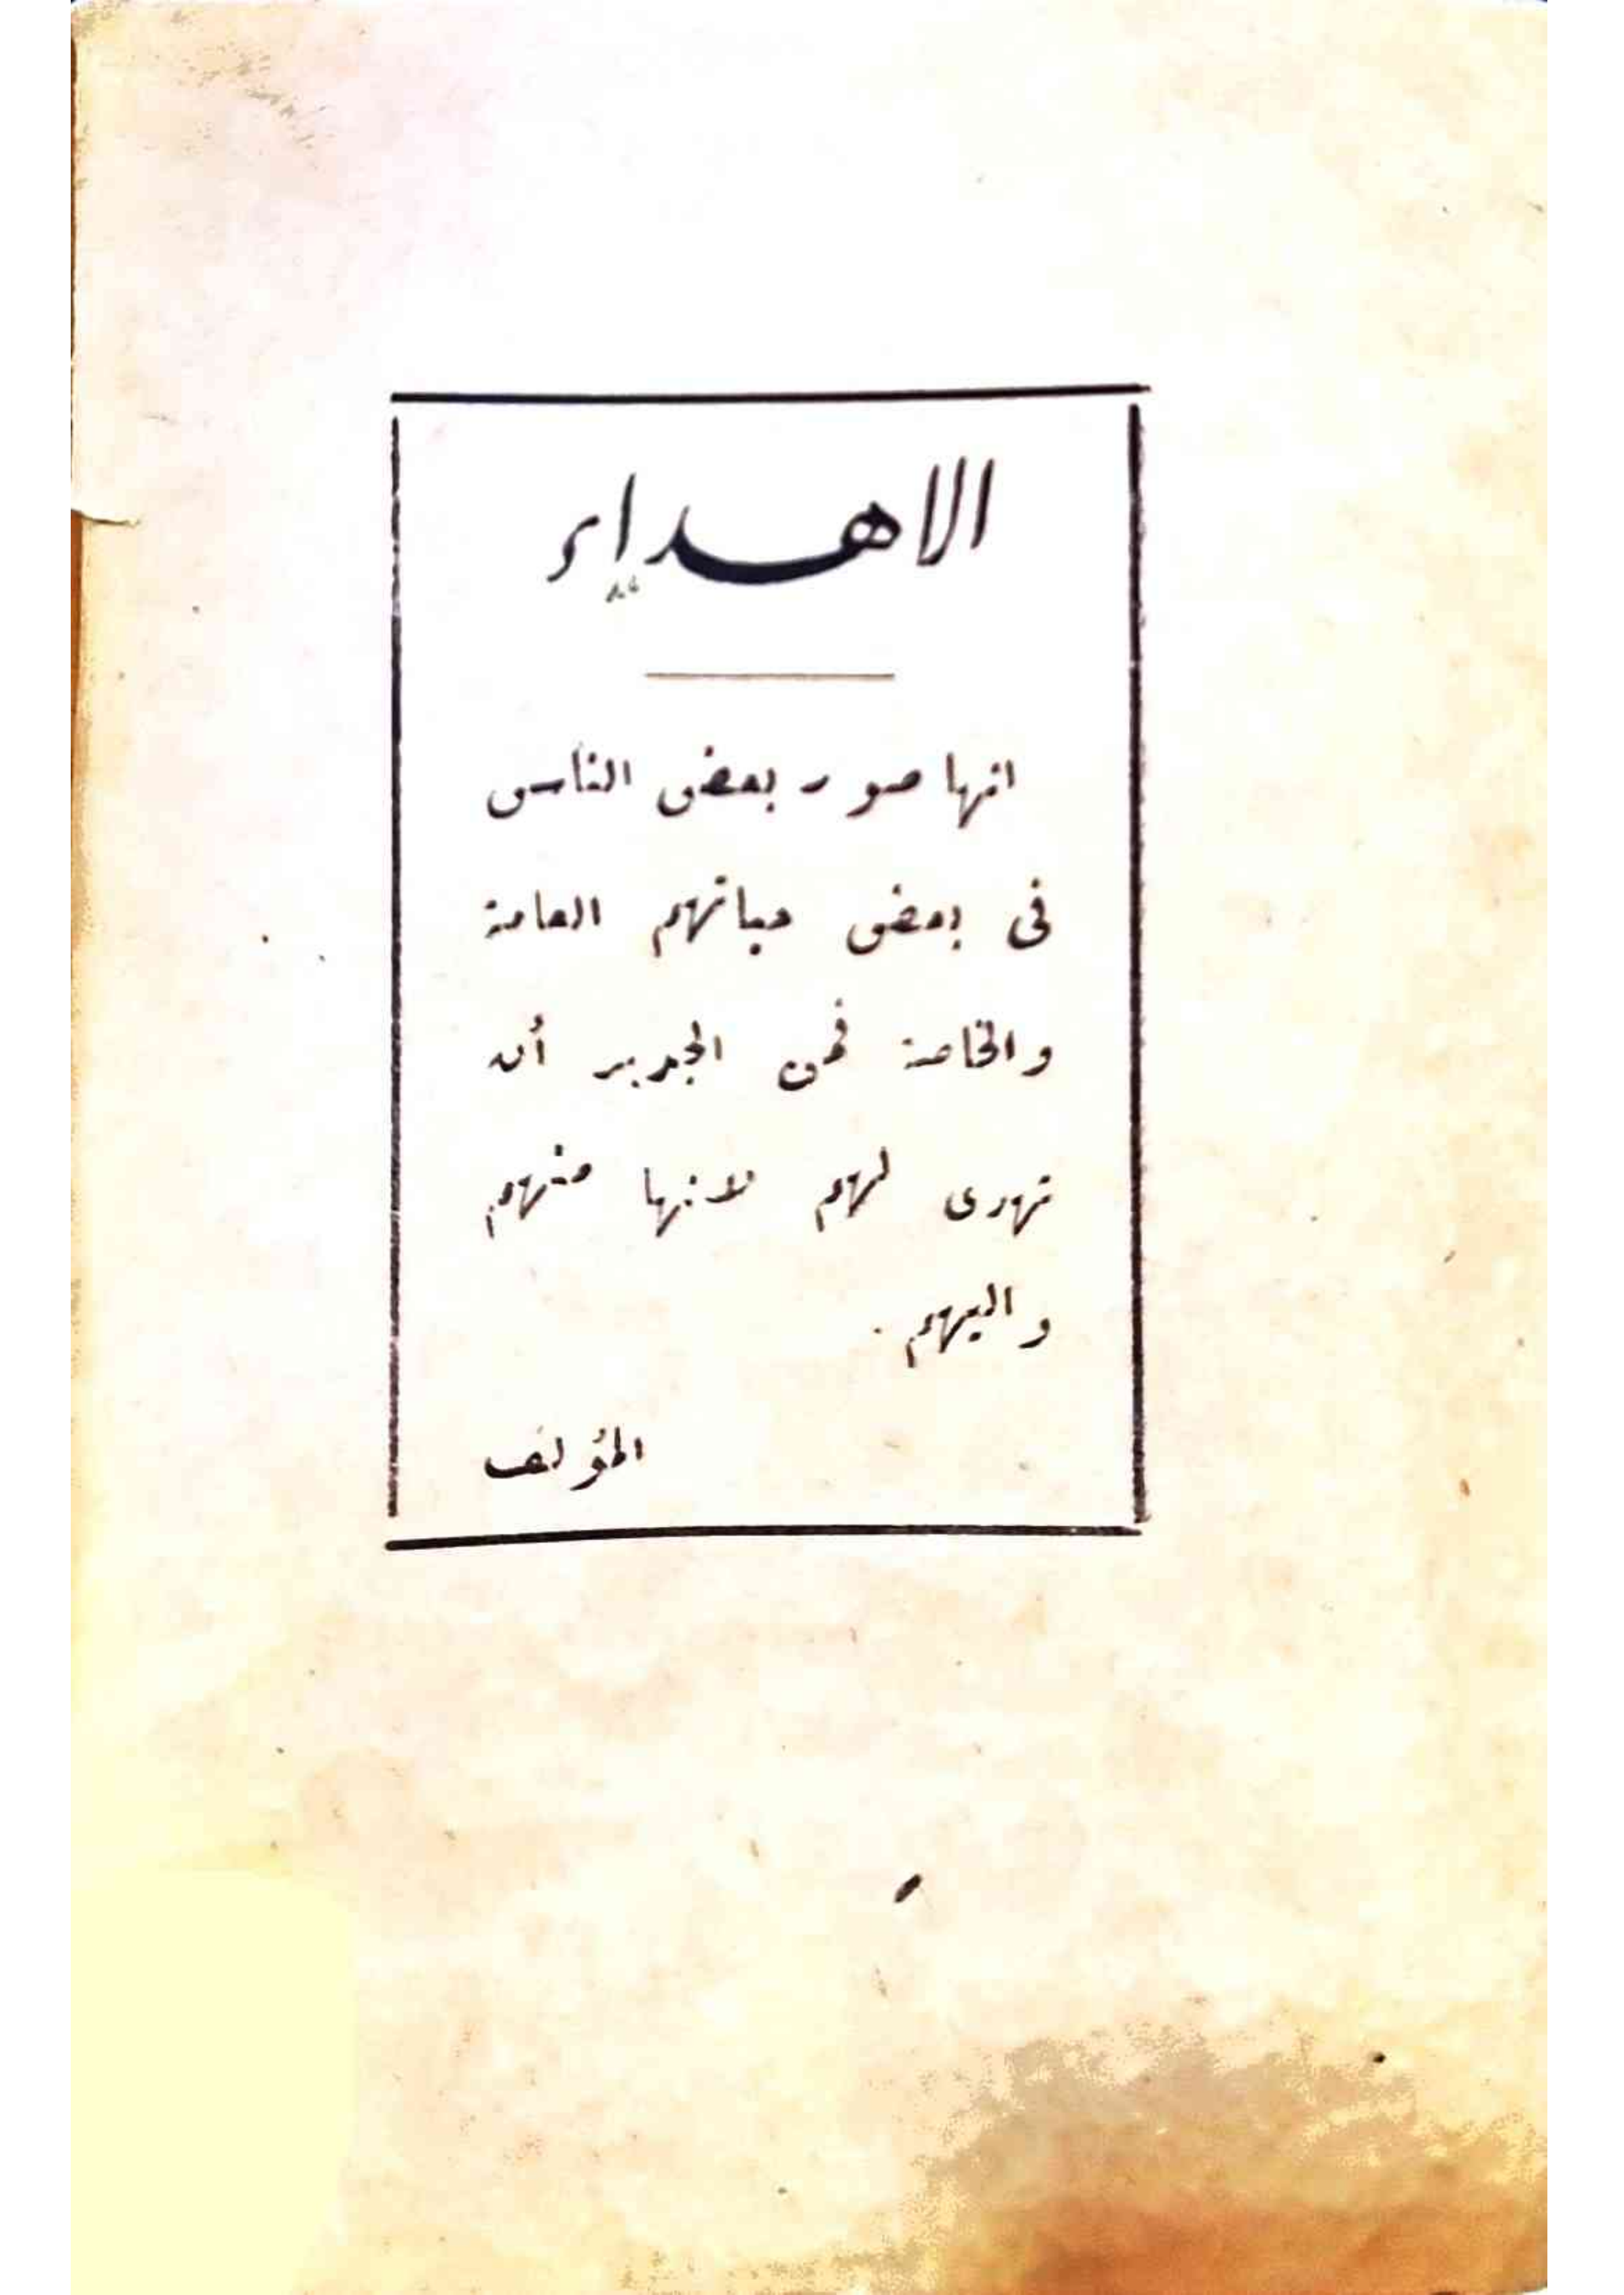 الاهداء
انها صور بعض الناس
فى بعض حياتهم العامة
والخاصة فمن الجدير أن
تهدى لهم لانها منهم
واليهم .
المؤلف